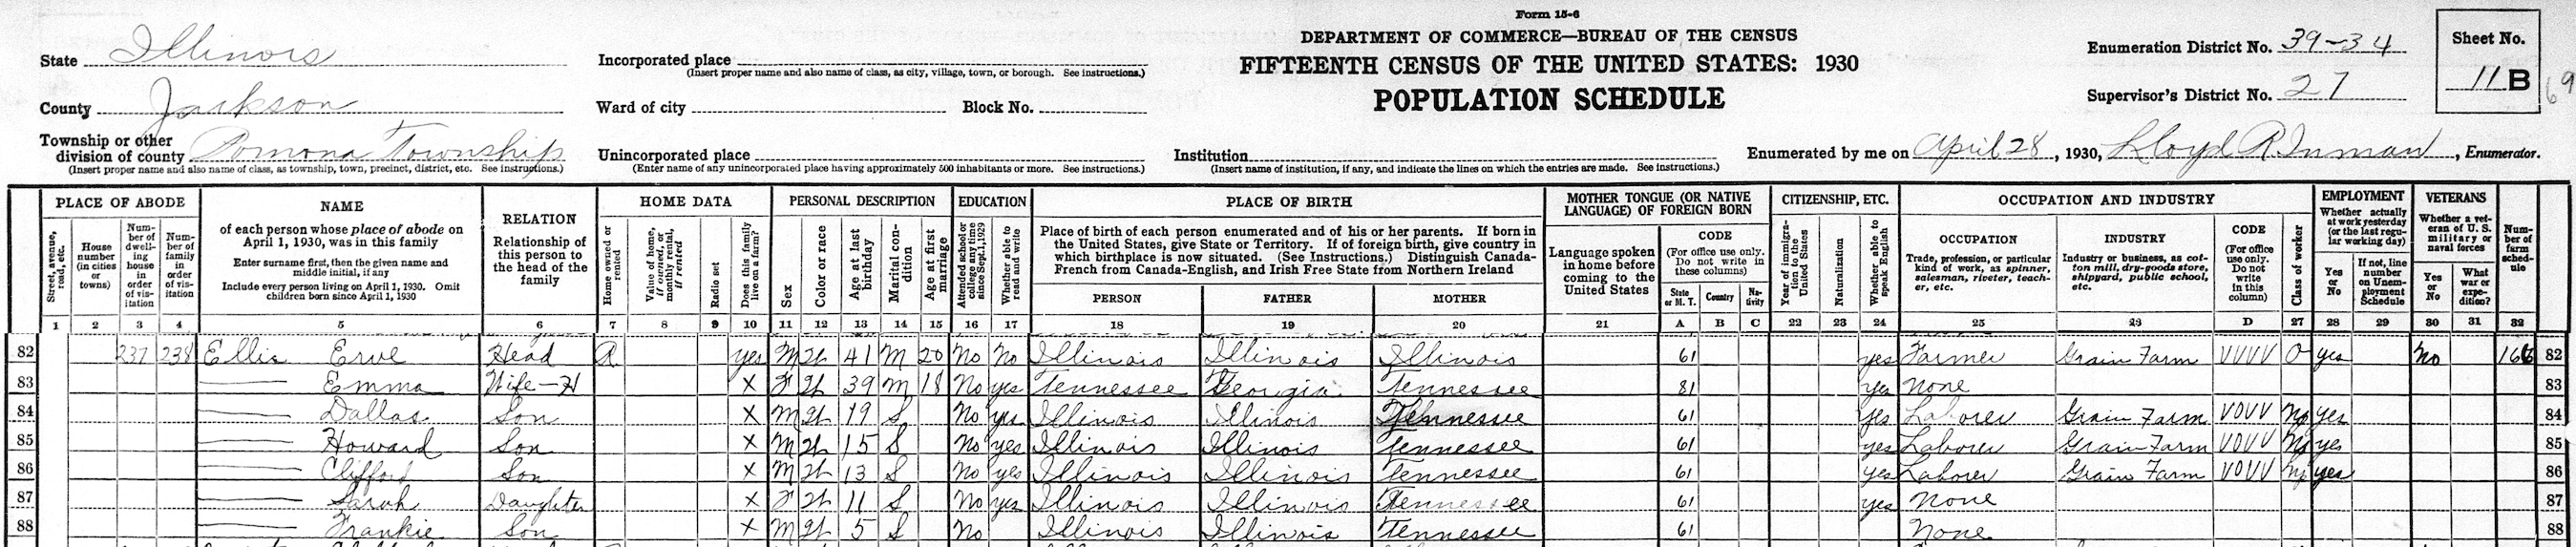 Form 15-6
DEPARTMENT OF COMMERCE—BUREAU OF THE CENSUS
FIFTEENTH CENSUS OF THE UNITED STATES: 1930
POPULATION SCHEDULE
State Illinois
County Jackson
Township or other division of county Pomona Township
(Insert proper name and also name of class, as township, town, precinct, district, etc. See instructions.)
Incorporated place
(Insert proper name and also name of class, as city, village, town, or borough. See instructions.)
Ward of city Block No.
Unincorporated place
(Enter name of any unincorporated place having approximately 500 inhabitants or more. See instructions.)
Institution
(Insert name of institution, if any, and indicate the lines on which the entries are made. See instructions.)
Enumeration District No. 39-34
Supervisor's District No. 27
Sheet No.
11 B
69
Enumerated by me on April 28, 1930, Lloyd R Inman, Enumerator.
PLACE OF ABODE
Street, avenue, road, etc.
House number (in cities or towns)
Number of dwelling house in order of visitation
Number of family in order of visitation
NAME
of each person whose place of abode on April 1, 1930, was in this family
Enter surname first, then the given name and middle initial, if any
Include every person living on April 1, 1930. Omit children born since April 1, 1930
RELATION
Relationship of this person to the head of the family
HOME DATA
Home owned or rented
Value of home, if owned, or monthly rental, if rented
Radio set
Does this family live on a farm?
PERSONAL DESCRIPTION
Sex
Color or race
Age at last birthday
Marital condition
Age at first marriage
EDUCATION
Attended school or college any time since Sept. 1, 1929
Whether able to read and write
PLACE OF BIRTH
Place of birth of each person enumerated and of his or her parents. If born in the United States, give State or Territory. If of foreign birth, give country in which birthplace is now situated. (See Instructions.) Distinguish Canada-French from Canada-English, and Irish Free State from Northern Ireland
PERSON FATHER MOTHER
MOTHER TONGUE (OR NATIVE LANGUAGE) OF FOREIGN BORN
Language spoken in home before coming to the United States
CODE
(For office use only. Do not write in these columns)
State or M. T. Country Nativity
CITIZENSHIP, ETC.
Year of immigration to the United States
Naturalization
Whether able to speak English
OCCUPATION AND INDUSTRY
OCCUPATION
Trade, profession, or particular kind of work, as spinner, salesman, riveter, teacher, etc.
INDUSTRY
Industry or business, as cotton mill, dry-goods store, shipyard, public school, etc.
CODE
(For office use only. Do not write in this column)
Class of worker
EMPLOYMENT
Whether actually at work yesterday (or the last regular working day)
Yes or No
If not, line number on Unemployment Schedule
VETERANS
Whether a veteran of U. S. military or naval forces
Yes or No
What war or expedition?
Number of farm schedule
1 2 3 4 5 6 7 8 9 10 11 12 13 14 15 16 17 18 19 20 21 A B C 22 23 24 25 26 D 27 28 29 30 31 32
82 237 238 Ellis Erve Head R yes M W 41 M 20 No No Illinois Illinois Illinois 61 yes Farmer Grain Farm VVVV O yes No 166 82
83 Emma Wife-H X F W 39 M 18 No yes Tennessee Georgia Tennessee 81 yes None 83
84 Dallas Son X M W 19 S No yes Illinois Illinois Tennessee 61 yes Laborer Grain Farm VOVV NP yes 84
85 Howard Son X M W 15 S No yes Illinois Illinois Tennessee 61 yes Laborer Grain Farm VOVV NP yes 85
86 Clifford Son X M W 13 S No yes Illinois Illinois Tennessee 61 yes Laborer Grain Farm VOVV NP yes 86
87 Sarah Daughter X F W 11 S No yes Illinois Illinois Tennessee 61 yes None 87
88 Frankie Son X M W 5 S No Illinois Illinois Tennessee 61 None 88